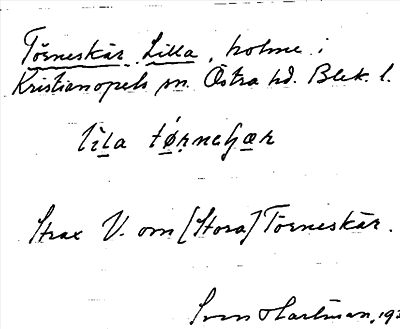 Törneskär, Lilla, holme i
Kristianopels sn. Östra hd. Blek. l.
lila
Strax V. om [Stora] Törneskär.
Sven Hartman, 19